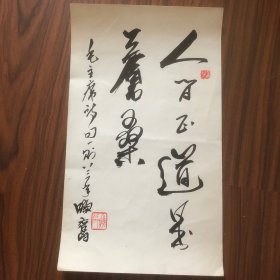 人间正道是
蒼桑
毛主席诗句一则 八三年